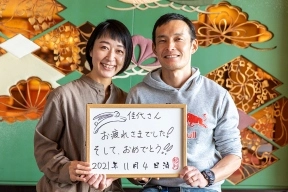 佳代さん
お疲れさまでした!!
そして、おめでとう!!
2021年11月4日